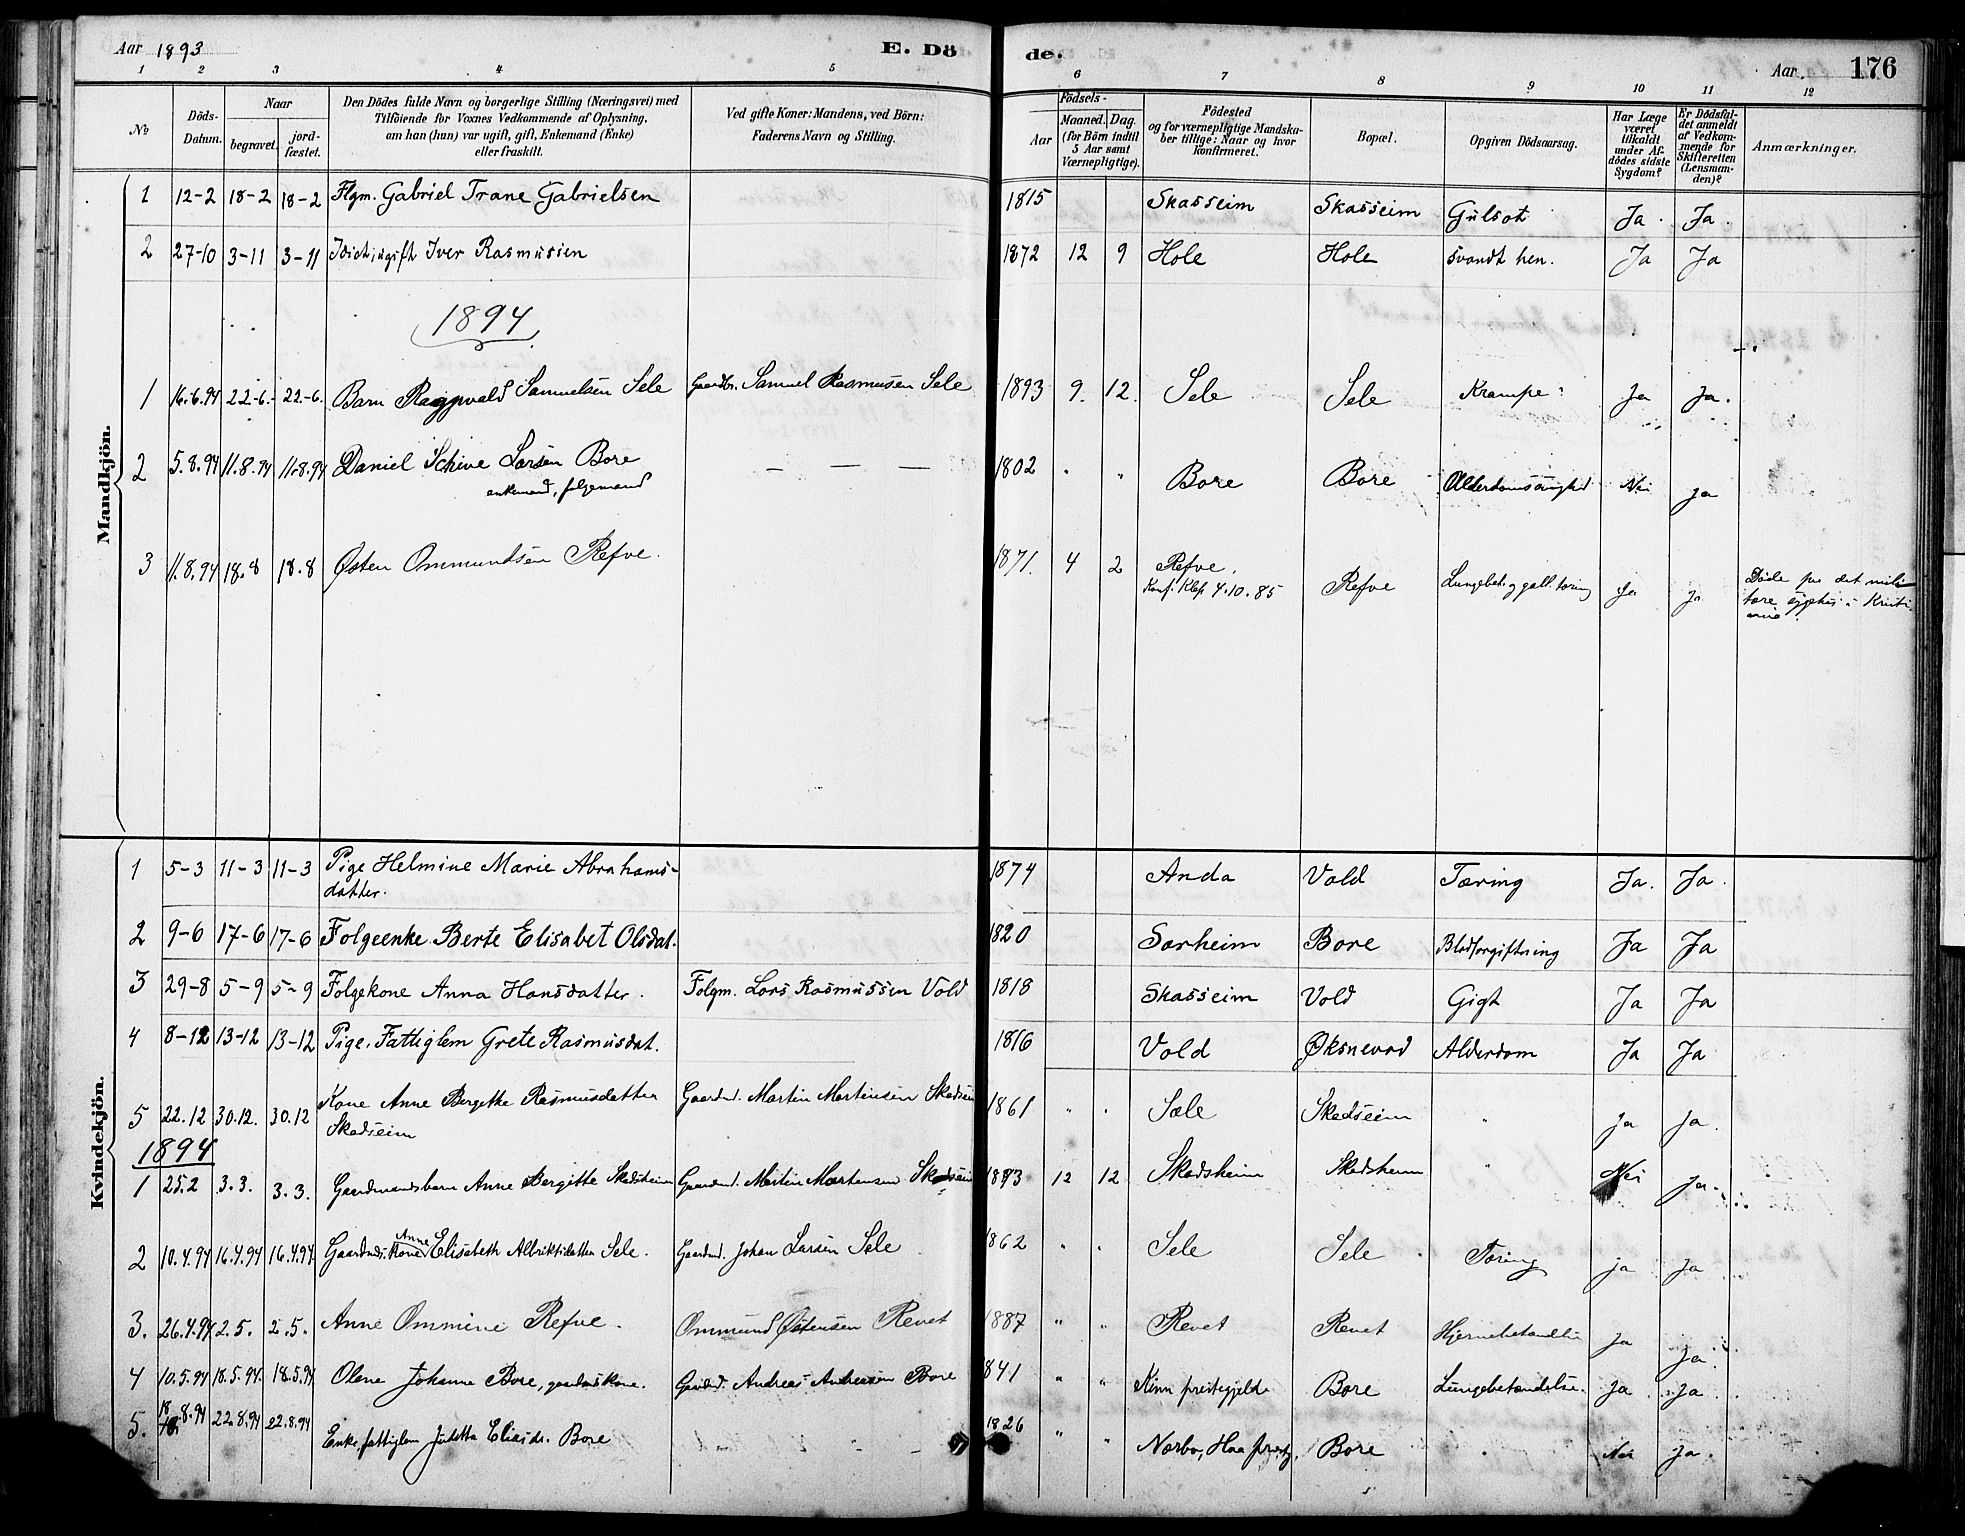 Aar 1893
E. Dö
de.
Aar
176
1 2 3 4 5 6 7 8 9 10 11 12
№
Döds-Datum.
Naar
begravet.
jordfæstet.
Den Dödes fulde Navn og borgerlige Stilling (Næringsvei) med
Tilföiende for Voxnes Vedkommende af Oplysning,
om han (hun) var ugift, gift, Enkemand (Enke)
eller fraskilt.
Ved gifte Koner: Mandens, ved Börn:
Faderens Navn og Stilling.
Födsels-
Aar
Maaned.
Dag.
(for Börn indtil
5 Aar samt
Værnepligtige).
Födested
og for værnepligtige Mandska-
ber tillige: Naar og hvor
konfirmeret.
Bopæl.
Opgiven Dödsaarsag.
Har Læge
været
tilkaldt
under Af-
dödes sidste
Sygdom?
Er Dödsfal-
det anmeldt
af Vedkom-
mende for
Skifteretten
(Lensman-
den)?
Anmærkninger.
Mandkjön.
1 12-2 18-2 18-2 Flgm. Gabriel Trane Gabrielsen 1815 Skasseim Skasseim Gulsot Ja. Ja.
2 27-10 3-11 3-11 Idiot, ugift Iver Rasmussen 1872 12 9 Hole Hole svandt hen. Ja Ja
1894
1 16.6.94 22-6. 22-6. Barn Ragnvald Samuelsen Sele Gaardbr. Samuel Rasmusen Sele 1893 9. 12. Sele Sele Krampe Ja Ja.
2 5.8.94 11.8.94 11.8.94 Daniel Schive Larsen Bore — — — 1802 " " Bore Bore Alderdomssvaghed Nei Ja
enkemand, folgemand
3 11.8.94 18.8 18.8 Østen Ommundsen Refve. 1871. 4 2 Refve, Refve Lungebet. og gall. tæring Ja Ja
Konf. Klep 4.10.85
Døde paa det mili
tære sygehus i Kristi
ania.
Kvindekjön.
1 5-3 11-3 11-3 Pige Helmine Marie Abrahams- 1874 Anda Vold Tæring Ja. Ja.
datter.
2 9-6 17-6 17-6 Folgeenke Berte Elisabet Olsdat. 1820 Sørheim Bore Blodforgiftning Ja Ja
3 29-8 5-9 5-9 Folgekone Anna Hansdatter. Folgm. Lars Rasmussen Vold 1818 Skasseim Vold Gigt Ja Ja
4 8-12 13-12 13-12 Pige, Fattiglem Grete Rasmusdat. 1816 Vold Øksnevad Alderdom Ja Ja
5 22.12 30.12. 30.12 Kone Anne Bergitte Rasmusdatter Gaardmd. Martin Mortensen Skadseim 1861 " " Sæle Skadseim " Ja Ja.
Skadseim
1894
1 25.2 3.3. 3.3. Gaardmandsbarn Anne Bergitte Skadsheim Gaardmd. Martin Mortensen Skadseim 1893 12 12 Skadsheim Skadsheim " Nei Ja.
2 10.4.94 16.4.94 16.4.94 Gaardmds. kone Anne Elisabeth Albriktsdatter Sele. Gaardmd. Johan Larsen Sele 1862 " " Sele Sele Tæring ja Ja
3. 26.4.94 2.5. 2.5. Anne Ommine Refve. Ommund Østensen Revet 1887 " " Revet Revet Hjernebetændelse Ja Ja.
4 10.5.94 18.5.94. 18.5.94 Olene Johanne Bore, gaardmds kone. Gaardmd. Andreas Andersen Bore 1841 " " Kinn prestegjeld Bore Lungebetændelse. Ja Ja.
5. 18.8.94 22.8.94 22.8.94 Enke, fattiglem Judetta Eliasdr. Bore 1826 " " Nærbø, Haa prestg. Bore Nei Ja.